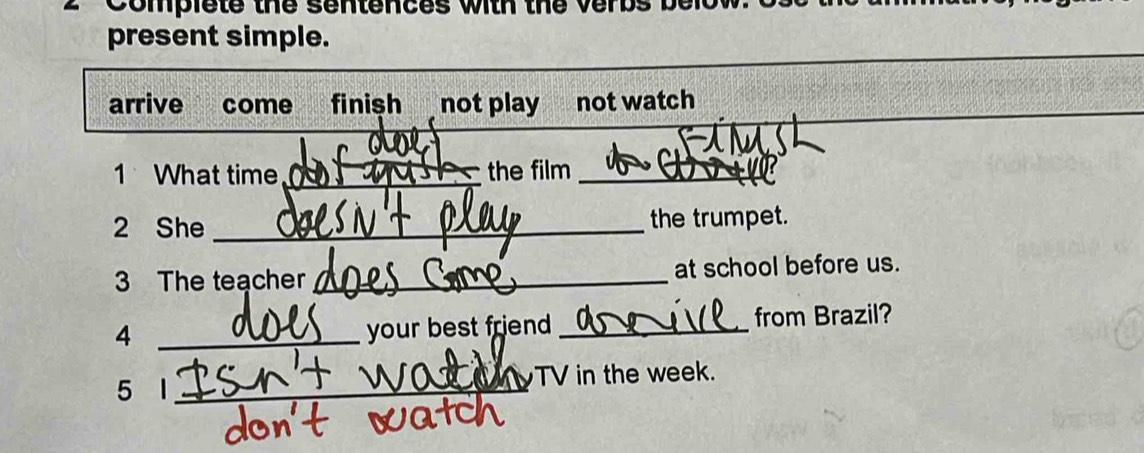 2 Complete the sentences with the verbs below.
present simple.
arrive come finish not play not watch
does Finish
1 What time the film ?
2 She doesn't play the trumpet.
3 The teacher does come at school before us.
4 does your best friend arrive from Brazil?
5 I Isn't watch TV in the week.
don't watch